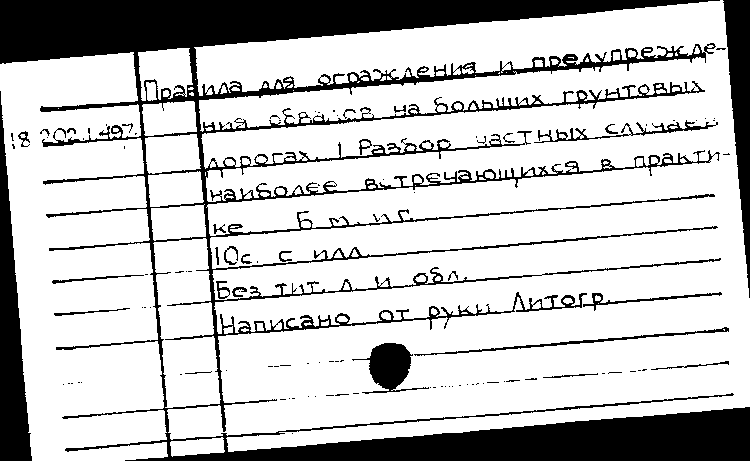 Правила для ограждения и предупрежде-
18.202.1.497. ния обвалов на больших грунтовых
дорогах. 1 Разбор частных случаев
наиболее встречающихся в практи-
ке Б м. и г.
10с. с илл.
Без тит. л и обл.
Написано от руки. Литогр.